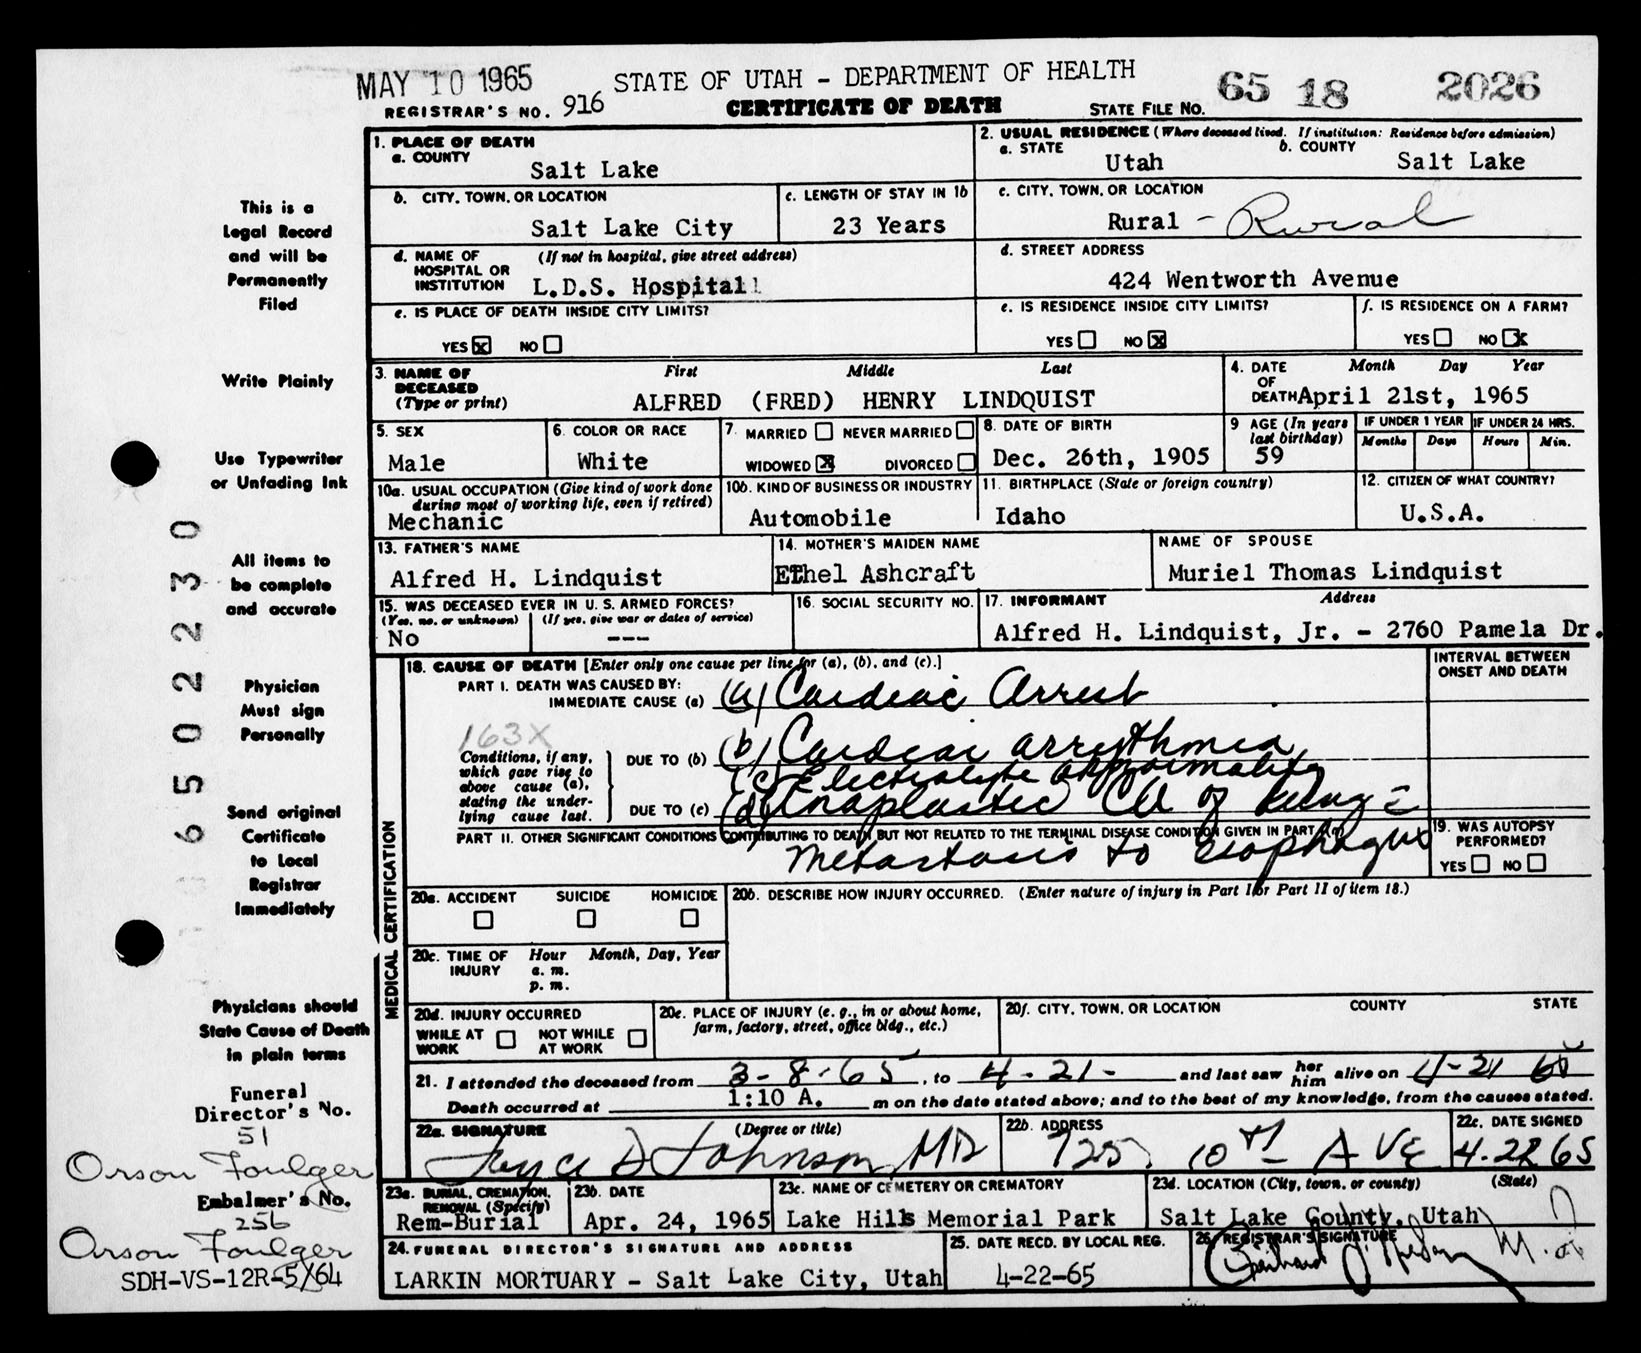 MAY 10 1965 STATE OF UTAH - DEPARTMENT OF HEALTH 65 18 2026
REGISTRAR'S NO. 916 CERTIFICATE OF DEATH STATE FILE NO.
1. PLACE OF DEATH
a. COUNTY
Salt Lake
2. USUAL RESIDENCE (Where deceased lived. If institution: Residence before admission)
a. STATE b. COUNTY
Utah Salt Lake
b. CITY, TOWN, OR LOCATION
Salt Lake City
c. LENGTH OF STAY IN 1b
23 Years
c. CITY, TOWN, OR LOCATION
Rural - Rural
d. NAME OF HOSPITAL OR INSTITUTION (If not in hospital, give street address)
L.D.S. Hospital
d. STREET ADDRESS
424 Wentworth Avenue
e. IS PLACE OF DEATH INSIDE CITY LIMITS?
YES x NO
e. IS RESIDENCE INSIDE CITY LIMITS?
YES NO x
f. IS RESIDENCE ON A FARM?
YES NO x
3. NAME OF DECEASED (Type or print) First Middle Last
ALFRED (FRED) HENRY LINDQUIST
4. DATE OF DEATH Month Day Year
April 21st, 1965
5. SEX
Male
6. COLOR OR RACE
White
7. MARRIED NEVER MARRIED
WIDOWED x DIVORCED
8. DATE OF BIRTH
Dec. 26th, 1905
9 AGE (In years last birthday)
59
IF UNDER 1 YEAR IF UNDER 24 HRS.
Months Days Hours Min.
10a. USUAL OCCUPATION (Give kind of work done during most of working life, even if retired)
Mechanic
10b. KIND OF BUSINESS OR INDUSTRY
Automobile
11. BIRTHPLACE (State or foreign country)
Idaho
12. CITIZEN OF WHAT COUNTRY?
U.S.A.
13. FATHER'S NAME
Alfred H. Lindquist
14. MOTHER'S MAIDEN NAME
Ethel Ashcraft
NAME OF SPOUSE
Muriel Thomas Lindquist
15. WAS DECEASED EVER IN U. S. ARMED FORCES?
(Yes, no, or unknown) (If yes, give war or dates of service)
No ---
16. SOCIAL SECURITY NO.
17. INFORMANT Address
Alfred H. Lindquist, Jr. - 2760 Pamela Dr.
MEDICAL CERTIFICATION
18. CAUSE OF DEATH [Enter only one cause per line for (a), (b), and (c).]
INTERVAL BETWEEN ONSET AND DEATH
PART I. DEATH WAS CAUSED BY:
IMMEDIATE CAUSE (a) (a) Cardiac Arrest
163X
Conditions, if any, which gave rise to above cause (a), stating the underlying cause last.
DUE TO (b) (b) Cardiac arrythmia
(c) Electrolyte abnormality
DUE TO (c) (d) Anaplastic CA of lung c̄
PART II. OTHER SIGNIFICANT CONDITIONS CONTRIBUTING TO DEATH BUT NOT RELATED TO THE TERMINAL DISEASE CONDITION GIVEN IN PART I(a)
metastasis to esophagus
19. WAS AUTOPSY PERFORMED?
YES NO
20a. ACCIDENT SUICIDE HOMICIDE
20b. DESCRIBE HOW INJURY OCCURRED. (Enter nature of injury in Part I or Part II of item 18.)
20c. TIME OF INJURY Hour Month, Day, Year
a. m.
p. m.
20d. INJURY OCCURRED
WHILE AT WORK NOT WHILE AT WORK
20e. PLACE OF INJURY (e. g., in or about home, farm, factory, street, office bldg., etc.)
20f. CITY, TOWN, OR LOCATION COUNTY STATE
21. I attended the deceased from 3-8-65, to 4-21- and last saw her him alive on 4-21 65
Death occurred at 1:10 A. m on the date stated above; and to the best of my knowledge, from the causes stated.
22a. SIGNATURE (Degree or title)
Joyce D Johnson, MD
22b. ADDRESS
725 10th AVE
22c. DATE SIGNED
4-22 65
23a. BURIAL, CREMATION, REMOVAL (Specify)
Rem-Burial
23b. DATE
Apr. 24, 1965
23c. NAME OF CEMETERY OR CREMATORY
Lake Hills Memorial Park
23d. LOCATION (City, town, or county) (State)
Salt Lake County, Utah
24. FUNERAL DIRECTOR'S SIGNATURE AND ADDRESS
LARKIN MORTUARY - Salt Lake City, Utah
25. DATE RECD. BY LOCAL REG.
4-22-65
26. REGISTRAR'S SIGNATURE
M.D.
This is a
Legal Record
and will be
Permanently
Filed
Write Plainly
Use Typewriter
or Unfading Ink
All items to
be complete
and accurate
Physician
Must sign
Personally
Send original
Certificate
to Local
Registrar
Immediately
Physicians should
State Cause of Death
in plain terms
Funeral
Director's No.
51
Orson Foulger
Embalmer's No.
256
Orson Foulger
SDH-VS-12R-5/64
65022230